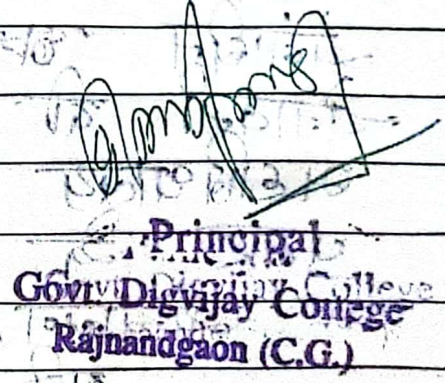 Principal
Govt. Digvijay College
Rajnandgaon (C.G.)